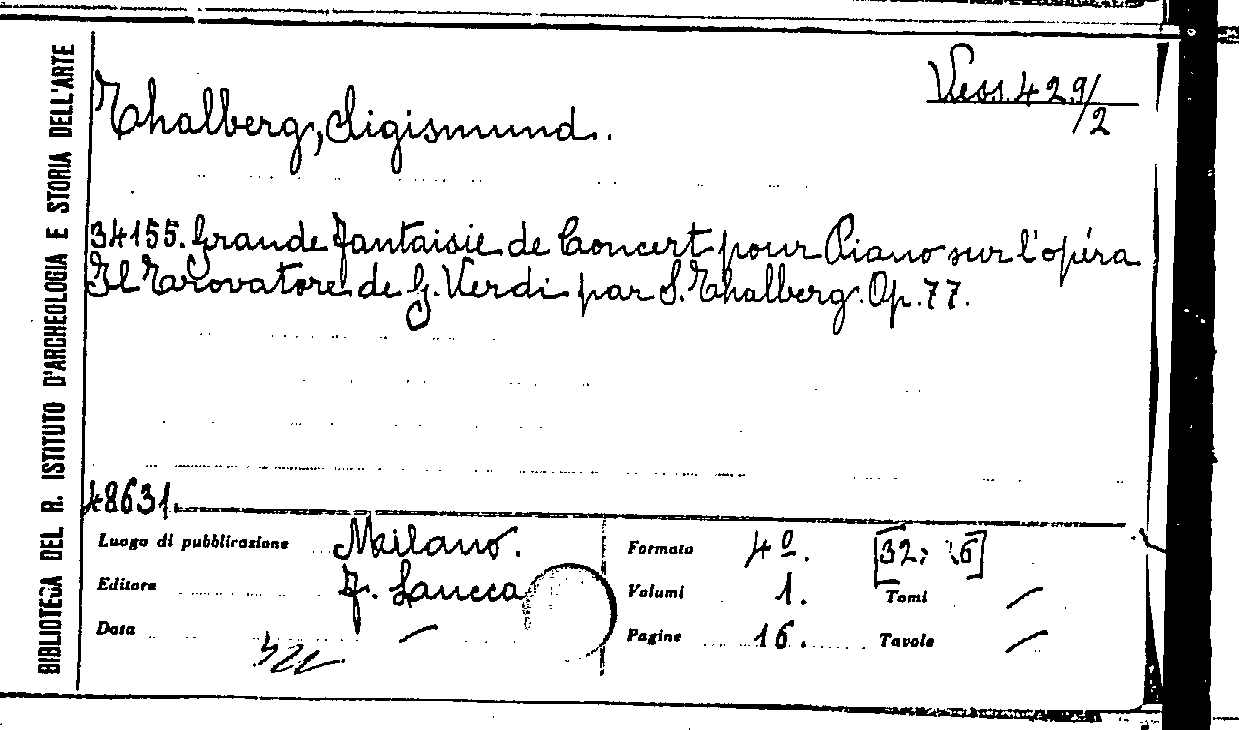 BIBLIOTECA DEL R. ISTITUTO D'ARCHEOLOGIA E STORIA DELL'ARTE
Vess. 429/2
Thalberg, Sigismund.
34155. Grande fantaisie de Concert pour Piano sur l'opéra
Il Trovatore de G. Verdi par S. Thalberg. Op. 77.
48631.
Luogo di pubblicazione Milano. Formato 4º. [32: 26]
Editore F. Lucca Volumi 1. Tomi /
Data / Pagine 16. Tavole /